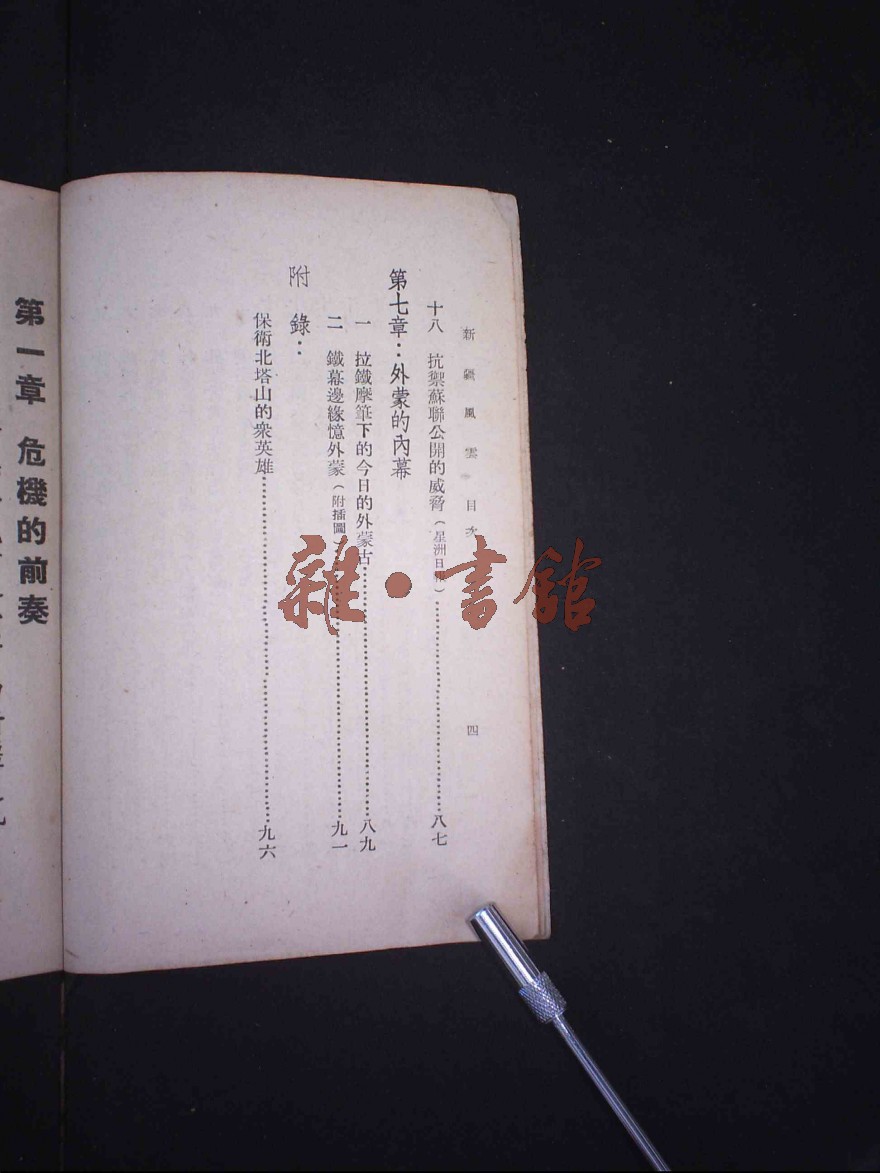 新疆風雲 目次 四
十八 抗禦蘇聯公開的威脅(星洲日報)……八七
第七章：外蒙的內幕
一 拉鐵摩筆下的今日的外蒙古……八九
二 鐵幕邊緣憶外蒙(附插圖)……九一
附錄：
保衛北塔山的衆英雄……九六
第一章 危機的前奏
雜·書館